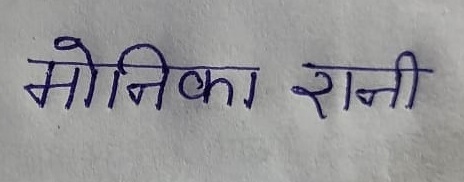 मोनिका रानी